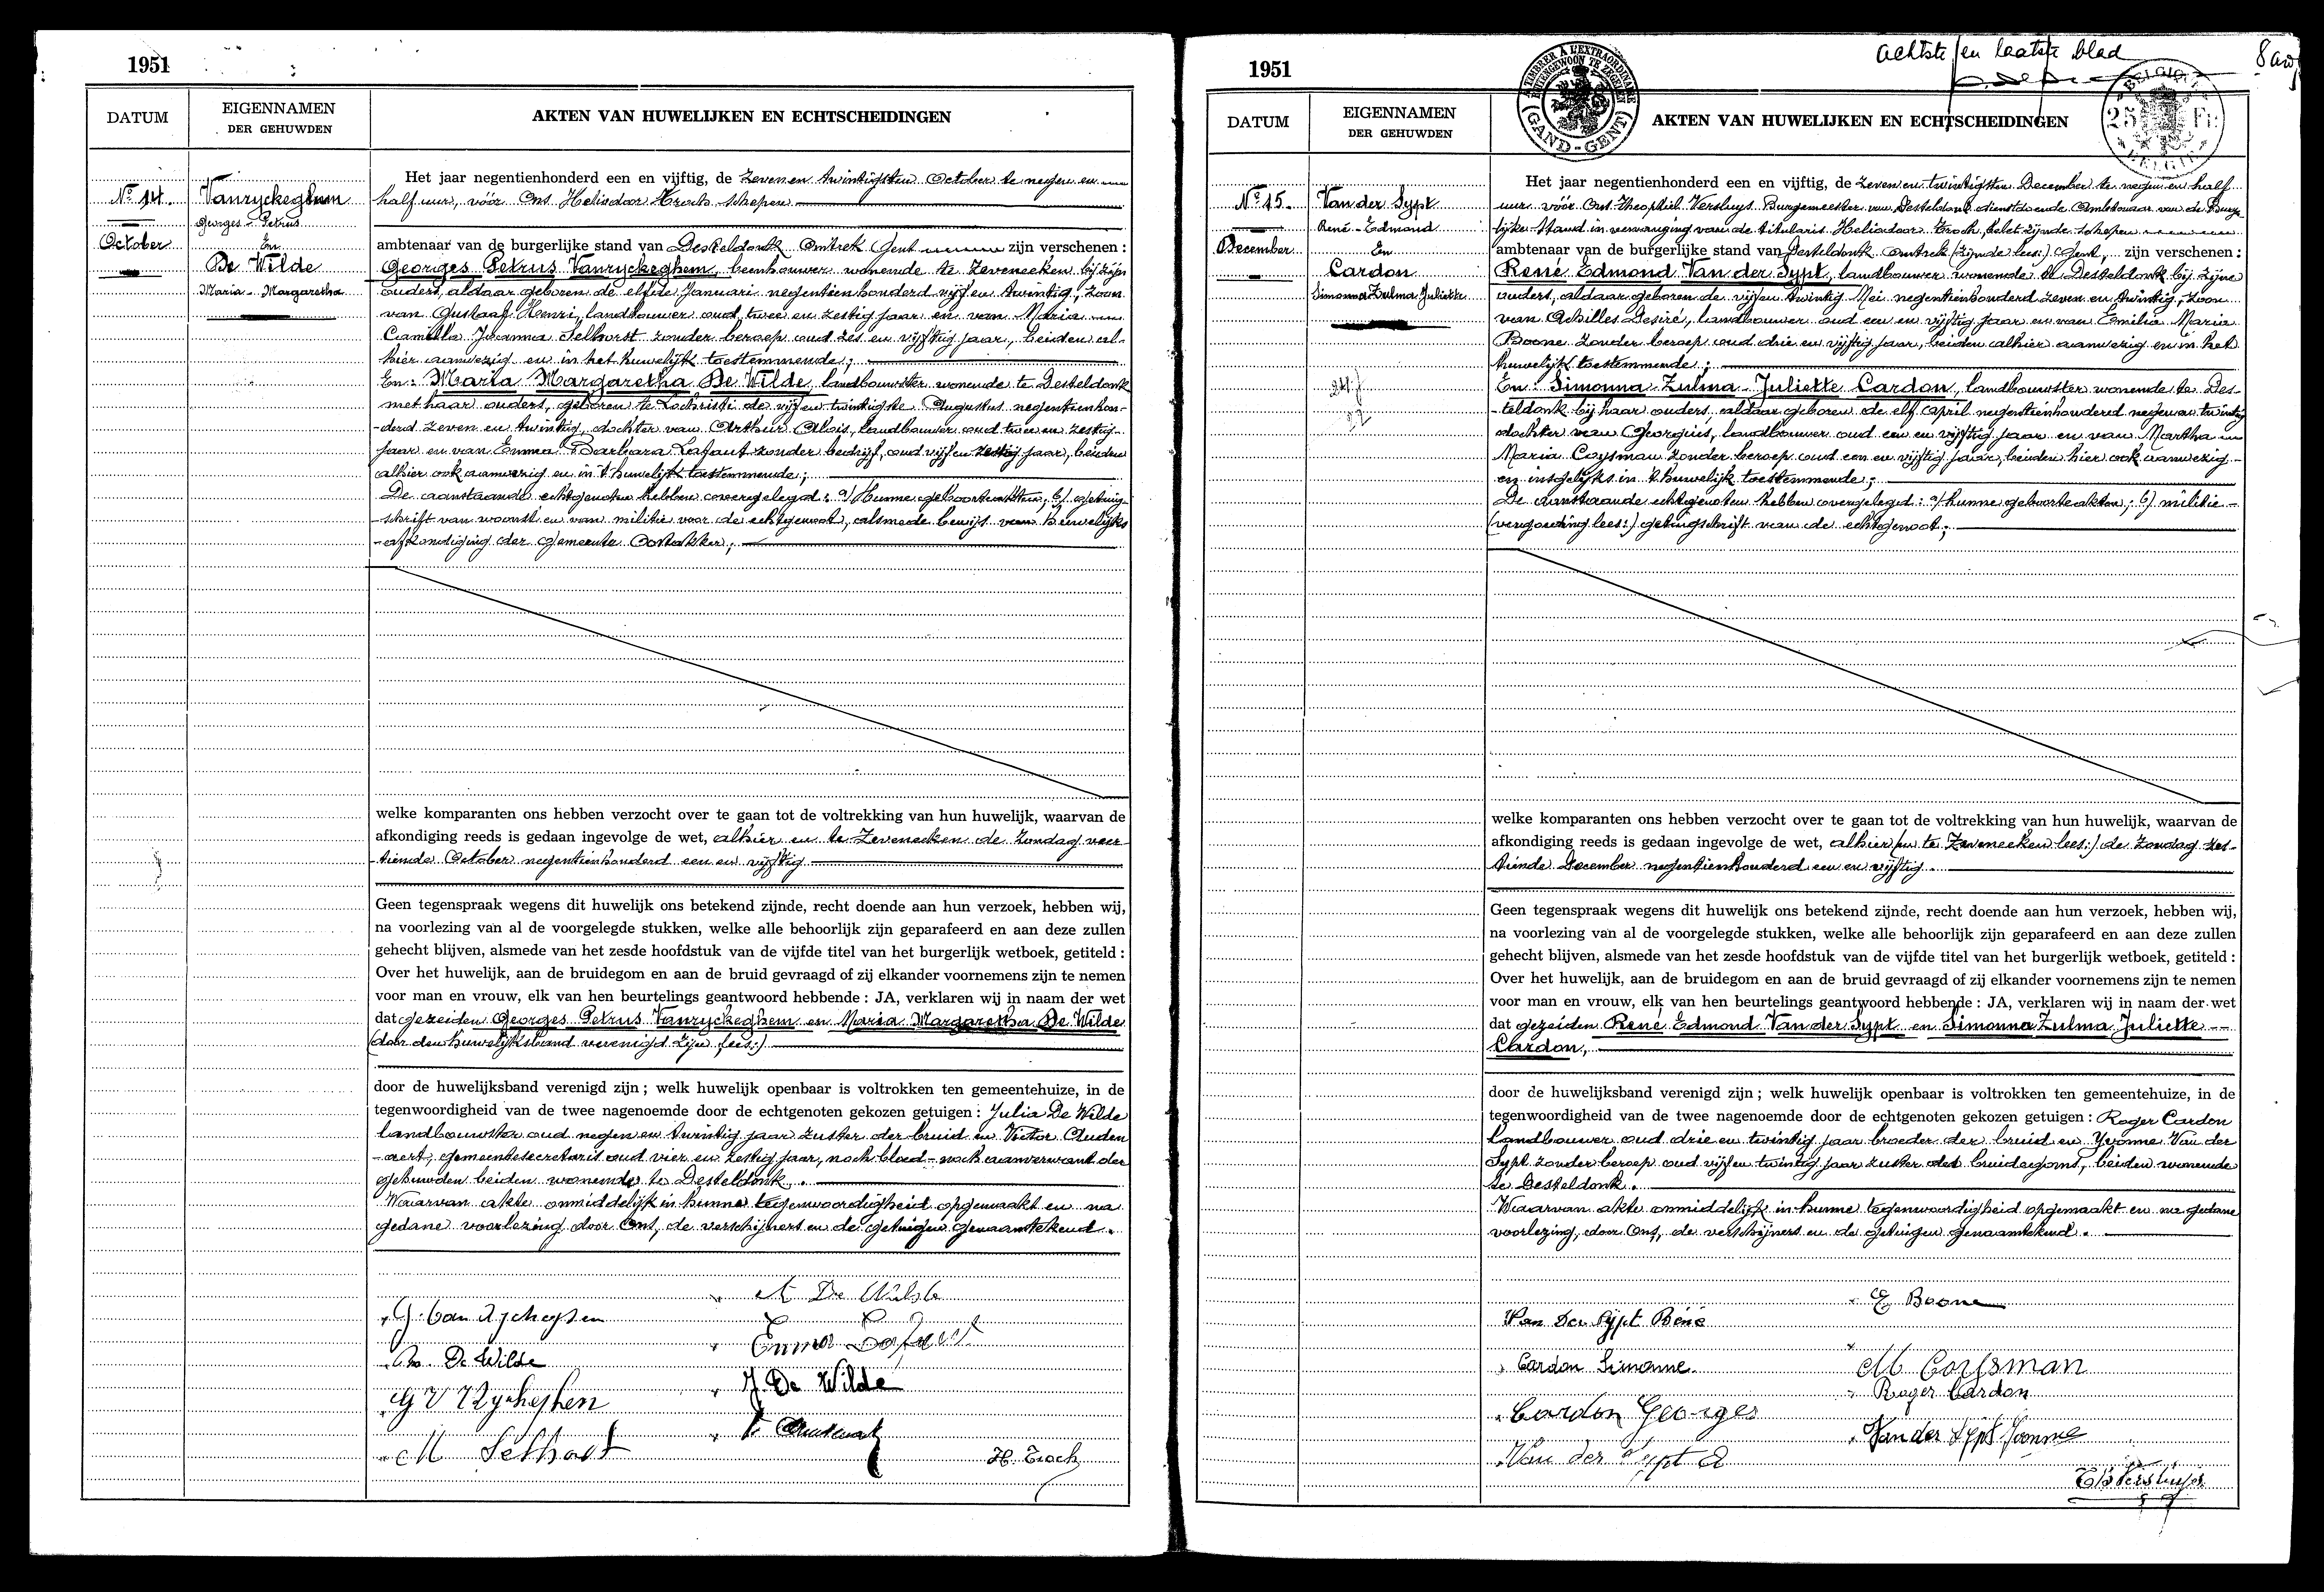 1951
DATUM
EIGENNAMEN
DER GEHUWDEN
AKTEN VAN HUWELIJKEN EN ECHTSCHEIDINGEN
No 14.
October
Vanryckeghem
Georges-Petrus
En
De Wilde
Maria-Margaretha
Het jaar negentienhonderd een en vijftig, de zeven en twintigsten October te negen en
half uur, vóór Ons Heliodoor Troch schepen
ambtenaar van de burgerlijke stand van Desteldonk Omtrek Gent zijn verschenen :
Georges Petrus Vanryckeghem, beenhouwer wonende te Zeveneeken bij zijn
ouders, aldaar geboren de elfde Januari negentienhonderd vijf en twintig, zoon
van Gustaaf Henri, landbouwer oud twee en zestig jaar en van Maria
Camilla Joanna Selhorst zonder beroep oud zes en vijftig jaar, beiden al-
hier aanwezig en in het huwelijk toestemmende ;
En : Maria Margaretha De Wilde, landbouwster wonende te Desteldonk
met haar ouders, geboren te Lochristi de vijf en twintigste Augustus negentienhon-
-derd zeven en twintig, dochter van Arthur Alois, landbouwer oud twee en zestig
jaar en van Emma Barbara Lafaut zonder bedrijf, oud vijf en zestig jaar, beiden
alhier ook aanwezig en in 't huwelijk toestemmende ;
De aanstaande echtgenoten hebben overgelegd : a) Hunne geboorteakten ; b) getuig-
-schrift van woonst en van militie voor de echtgenoot, alsmede bewijs van huwelijks
-afkondiging der gemeente Oostakker ;
welke komparanten ons hebben verzocht over te gaan tot de voltrekking van hun huwelijk, waarvan de
afkondiging reeds is gedaan ingevolge de wet, alhier en te Zeveneeken de Zondag veer-
tiende October negentienhonderd een en vijftig
Geen tegenspraak wegens dit huwelijk ons betekend zijnde, recht doende aan hun verzoek, hebben wij,
na voorlezing van al de voorgelegde stukken, welke alle behoorlijk zijn geparafeerd en aan deze zullen
gehecht blijven, alsmede van het zesde hoofdstuk van de vijfde titel van het burgerlijk wetboek, getiteld :
Over het huwelijk, aan de bruidegom en aan de bruid gevraagd of zij elkander voornemens zijn te nemen
voor man en vrouw, elk van hen beurtelings geantwoord hebbende : JA, verklaren wij in naam der wet
dat gezeiden Georges Petrus Vanryckeghem en Maria Margaretha De Wilde
(door den huwelijksband verenigd zijn lees:)
door de huwelijksband verenigd zijn ; welk huwelijk openbaar is voltrokken ten gemeentehuize, in de
tegenwoordigheid van de twee nagenoemde door de echtgenoten gekozen getuigen : Julia De Wilde
landbouwster oud negen en twintig jaar zuster der bruid en Victor Auden
-aert, gemeentesecretaris oud vier en zestig jaar, noch bloed- noch aanverwant der
gehuwden beiden wonende te Desteldonk.
Waarvan akte onmiddelijk in hunne tegenwoordigheid opgemaakt en na
gedane voorlezing door Ons, de verschijners en de getuigen genaamtekend.
A De Wilde
G. Van Ryckeghem
Emma Lafaut
M. De Wilde
J. De Wilde
G V Ryckeghem
V. Audenaert
M Selhorst
H. Troch
1951
achtste en laatste blad
A TIMBRER A L'EXTRAORDINAIRE
BUITENGEWOON TE ZEGELEN
(GAND-GENT)
BELGIQUE
25 Fr.
BELGIE
DATUM
EIGENNAMEN
DER GEHUWDEN
AKTEN VAN HUWELIJKEN EN ECHTSCHEIDINGEN
No 15.
December
Van der Sypt
René-Edmond
En
Cardon
Simonna Zulma Juliette
Het jaar negentienhonderd een en vijftig, de zeven en twintigsten December te negen en half
uur vóór Ons Theophiel Versluys Burgemeester van Desteldonk dienstdoende Ambtenaar van de Burge
lijke Stand in vervanging van de titularis Heliodoor Troch, belet zijnde schepen
ambtenaar van de burgerlijke stand van Desteldonk Omtrek (zijnde lees:) Gent, zijn verschenen :
René Edmond Van der Sypt, landbouwer wonende te Desteldonk bij zijne
ouders, aldaar geboren de vijf en twintig Mei negentienhonderd zeven en twintig, zoon
van Achilles Desiré, landbouwer oud een en vijftig jaar en van Emilia Maria
Boone zonder beroep oud drie en vijftig jaar, beiden alhier aanwezig en in het
huwelijk toestemmende ;
En : Simonna Zulma Juliette Cardon, landbouwster wonende te Des-
-teldonk bij haar ouders, aldaar geboren de elf April negentienhonderd negen en twintig
dochter van Georgius, landbouwer oud een en vijftig jaar en van Martha
Maria Coysman zonder beroep oud een en vijftig jaar, beiden hier ook aanwezig
en insgelijks in 't huwelijk toestemmende ;
De aanstaande echtgenoten hebben overgelegd : a) hunne geboorteakten ; b) militie-
(vergoeding lees:) getuigschrift van de echtgenoot ;
welke komparanten ons hebben verzocht over te gaan tot de voltrekking van hun huwelijk, waarvan de
afkondiging reeds is gedaan ingevolge de wet, alhier (en te Zeveneeken lees:) de Zondag zes-
tiende December negentienhonderd een en vijftig.
Geen tegenspraak wegens dit huwelijk ons betekend zijnde, recht doende aan hun verzoek, hebben wij,
na voorlezing van al de voorgelegde stukken, welke alle behoorlijk zijn geparafeerd en aan deze zullen
gehecht blijven, alsmede van het zesde hoofdstuk van de vijfde titel van het burgerlijk wetboek, getiteld :
Over het huwelijk, aan de bruidegom en aan de bruid gevraagd of zij elkander voornemens zijn te nemen
voor man en vrouw, elk van hen beurtelings geantwoord hebbende : JA, verklaren wij in naam der wet
dat gezeiden René Edmond Van der Sypt en Simonna Zulma Juliette
Cardon,
door de huwelijksband verenigd zijn ; welk huwelijk openbaar is voltrokken ten gemeentehuize, in de
tegenwoordigheid van de twee nagenoemde door de echtgenoten gekozen getuigen : Roger Cardon
Landbouwer oud drie en twintig jaar broeder der bruid en Yvonne Van der
Sypt zonder beroep oud vijf en twintig jaar zuster des bruidegoms, beiden wonende
te Desteldonk.
Waarvan akte onmiddelijk in hunne tegenwoordigheid opgemaakt en na gedane
voorlezing, door Ons, de verschijners en de getuigen genaamtekend.
E. Boone
Van Der Sypt Réné
Cardon Simonne
M Coysman
Roger Cardon
Cardon Georges
Van der Sypt Yvonne
Van der Sypt A
Th Versluys